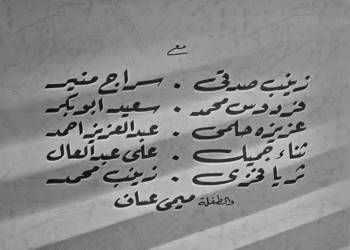 مع
زينب صدقى . سراج منير
فردوس محمد . سعيد ابوبكر
عزيزه حلمى . عبدالعزيز احمد
ثناء جميل . على عبدالعال
ثريا فخرى . زينب محمد
والطفلة ميمى عساف